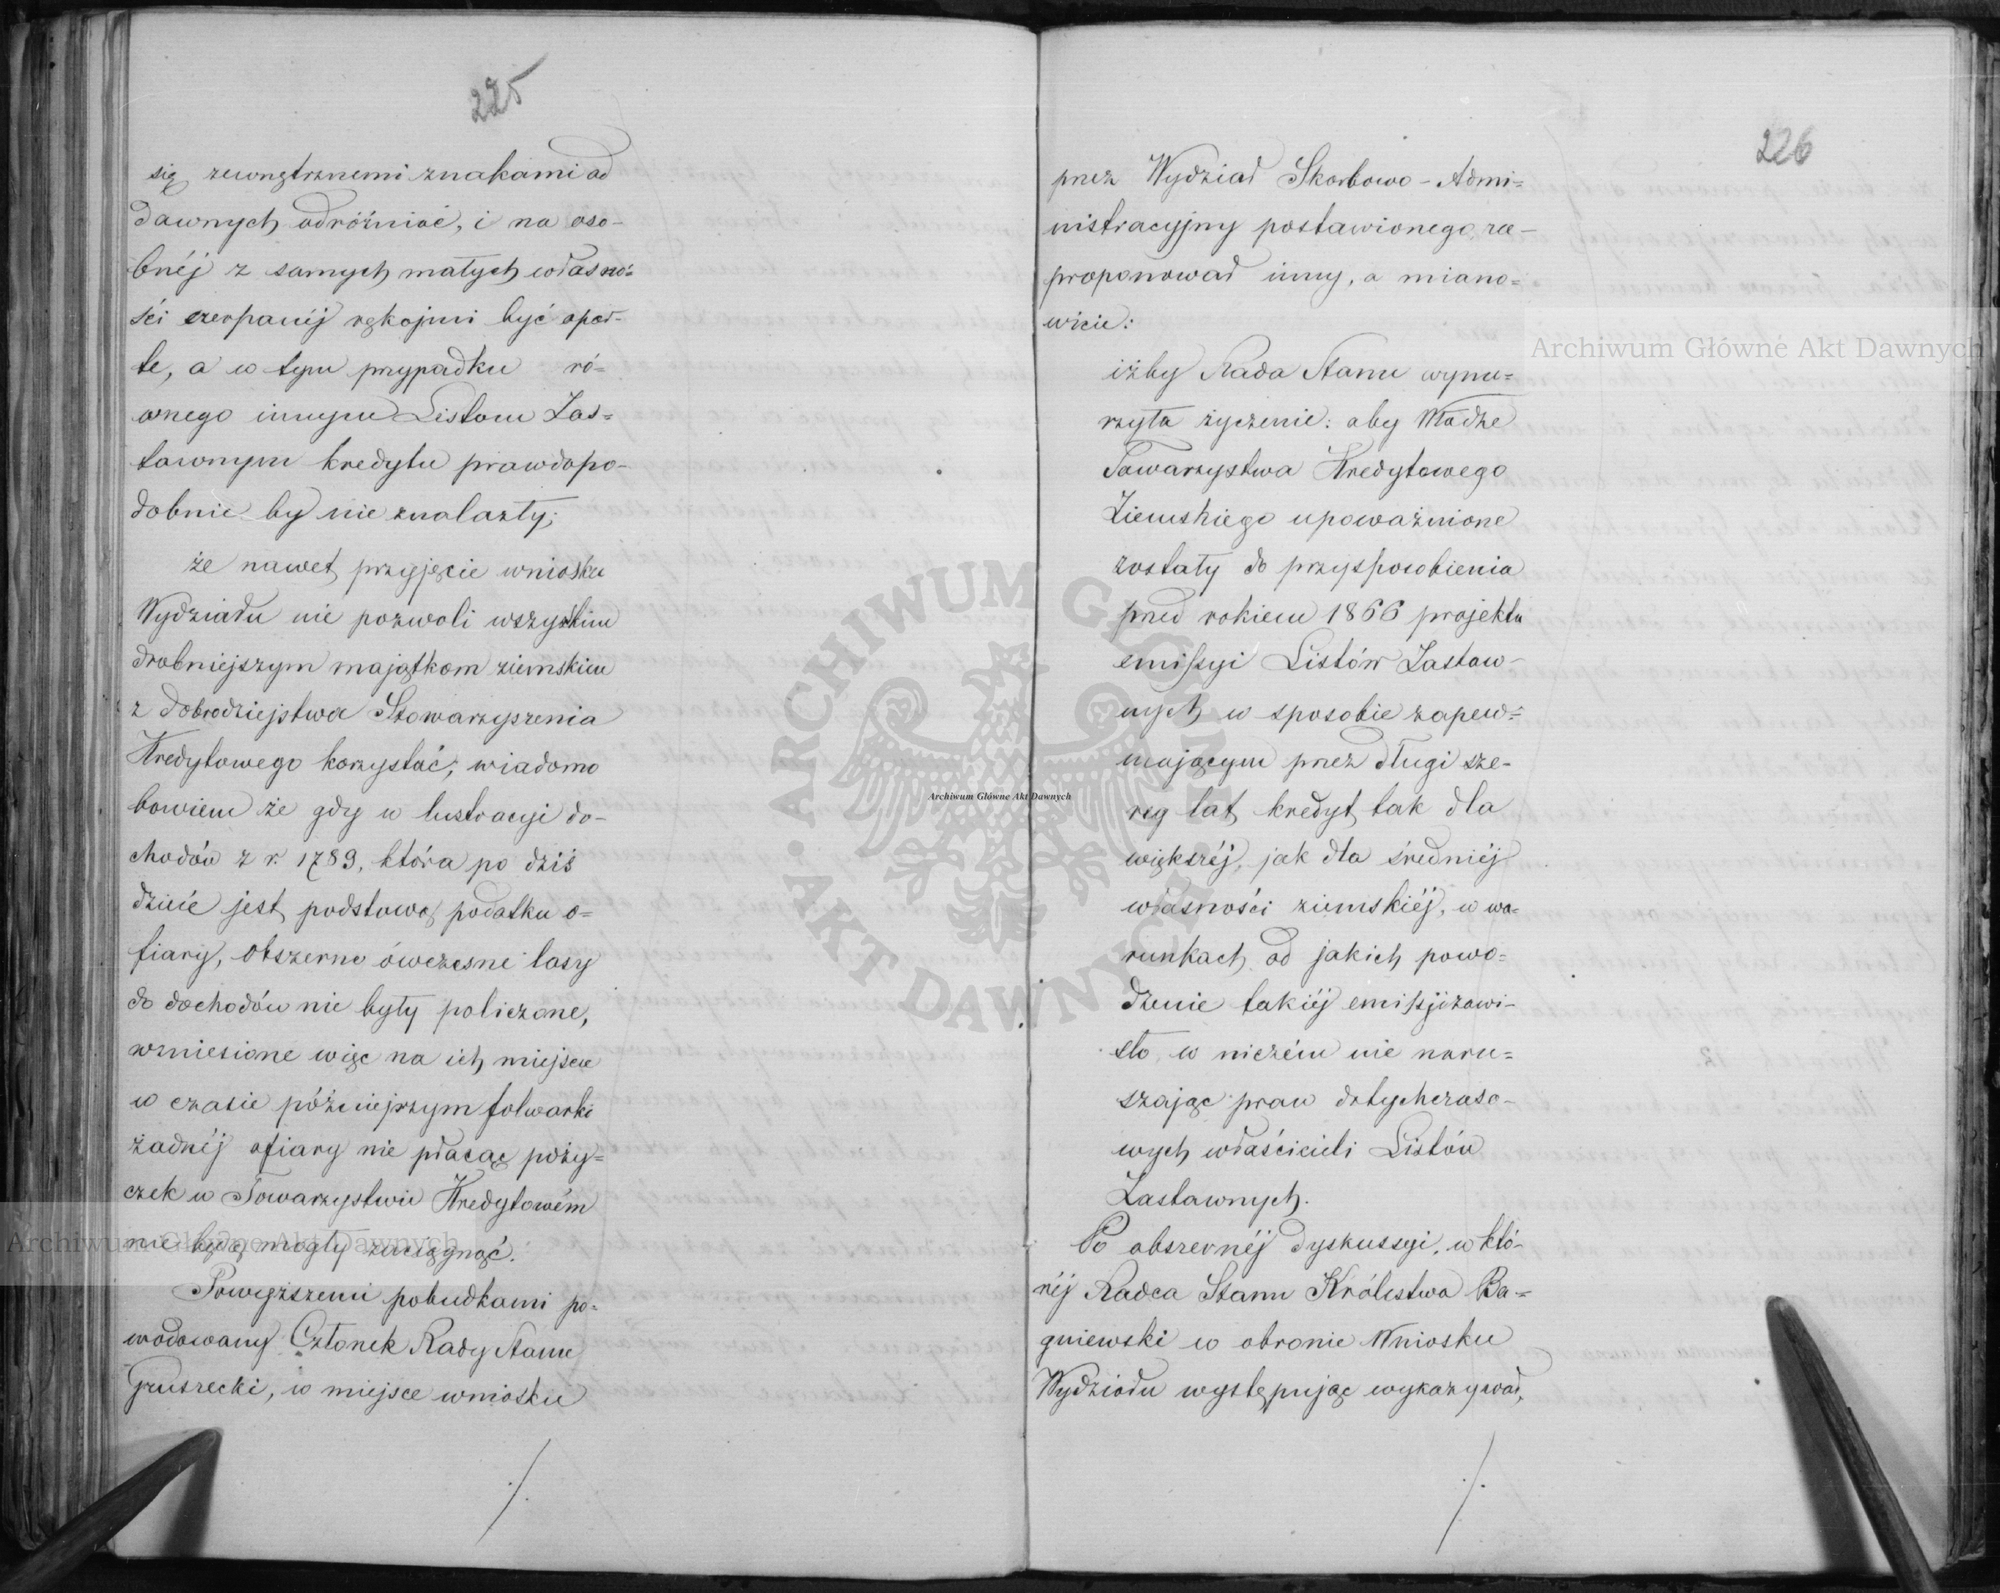 225
się zewnętrznemi znakami od
dawnych odróżniać, i na oso-
bnéj z samych małych własno=
ści czerpanéj rękojmi być opar-
te, a w tym przypadku ró=
wnego innym Listom Zas=
tawnym kredytu prawdopo-
dobnie by nie znalazły;
że nawet przyjęcie wniosku
Wydziału nie pozwoli wszystkim
drobniejszym majątkom ziemskim
z dobrodziejstwa Stowarzyszenia
Kredytowego korzystać; wiadomo
bowiem że gdy w lustracyi do-
chodów z r. 1789, która po dziś
dzień jest podstawą podatku o=
fiary, obszerne ówczesne lasy
do dochodów nie były policzone,
wzniesione więc na ich miejsce
w czasie późniejszym folwarki
żadnéj ofiary nie płacąc poży=
czek w Towarzystwie Kredytowém
nie będą mogły zaciągnąć.
Powyższemi pobudkami po=
wodowany Członek Rady Stanu
Gruszecki, w miejsce wniosku
./.
226
przez Wydział Skarbowo-Admi=
nistracyjny postawionego, za-
proponował inny, a miano=
wicie:
iżby Rada Stanu wynu=
rzyła życzenie: aby Władze
Towarzystwa Kredytowego
Ziemskiego upoważnione
zostały do przysposobienia
przed rokiem 1866 projektu
emissyi Listów Zastaw-
nych w sposobie zapew=
niającym przez długi sze-
reg lat kredyt tak dla
większéj, jak dla średniéj
własności ziemskiéj, w wa=
runkach od jakich powo=
dzenie takiéj emissji zawi-
sło, w niczém nie naru=
szając praw dotychczaso-
wych właścicieli Listów
Zastawnych.
Po obszernéj dyskussyi, w któ-
réj Radca Stanu Królestwa Ba=
gniewski w obronie Wniosku
Wydziału występując wykazywał,
./.
Archiwum Główne Akt Dawnych
Archiwum Główne Akt Dawnych
Archiwum Główne Akt Dawnych
ARCHIWUM GŁÓWNE • AKT DAWNYCH •